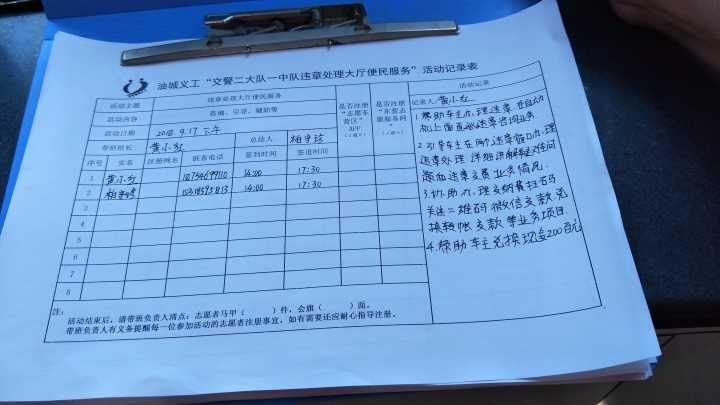 油城义工“交警二大队一中队违章处理大厅便民服务”活动记录表
活动主题 违章处理大厅便民服务
活动内容 咨询、引导、辅助等
活动日期 2018.9.17下午
带班组长 黄小红 总结人
序号 实名 注册网名 联系电话 签到时间 签退时间
是否注册“志愿东营区”APP（√或×）
是否注册“东营志愿服务网（√或×）
1 黄小红 14:00 17:30
2 14:00 17:30
3
4
5
6
7
8
活动记录
记录人：黄小红
1.帮助车主办理违章，并自动
机上面查验违章咨询业务
2.引导车主在两个违章窗口办理
违章处理，详细讲解
违章交费业务情况。
3.协助办理交纳费扫码
关注二维码微信交款
换转帐交款等业务项目.
4.帮助车主兑换现金200百元
注：
活动结束后，请带班负责人清点：志愿者马甲（ ）件，会旗（ ）面。
带班负责人有义务提醒每一位参加活动的志愿者注册事宜，如有需要还应耐心指导注册。